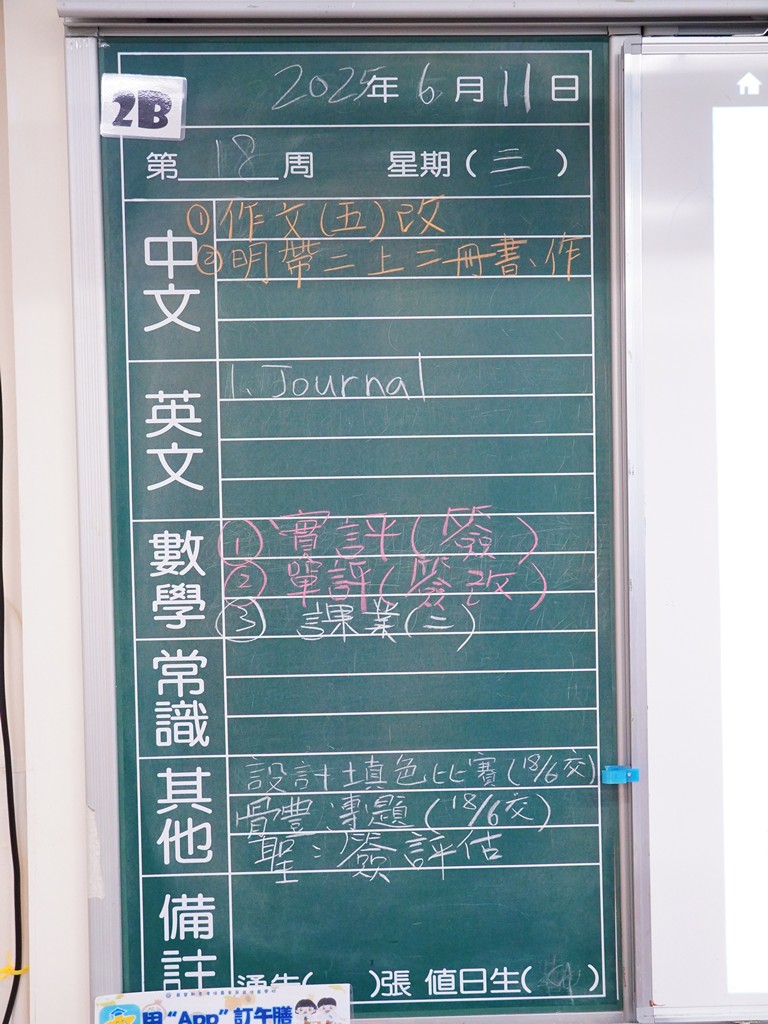 2B
2025年6月11日
第18周 星期(三)
中文
①作文(五)改
②明帶二上二冊書、作
英文
1. Journal
數學
①實評(簽)
②單評(簽改)
③課業(二)
常識
其他
設計填色比賽(18/6交)
體 專題(18/6交)
聖:簽評估
備註
通告( )張 值日生( )
用“App”訂午膳